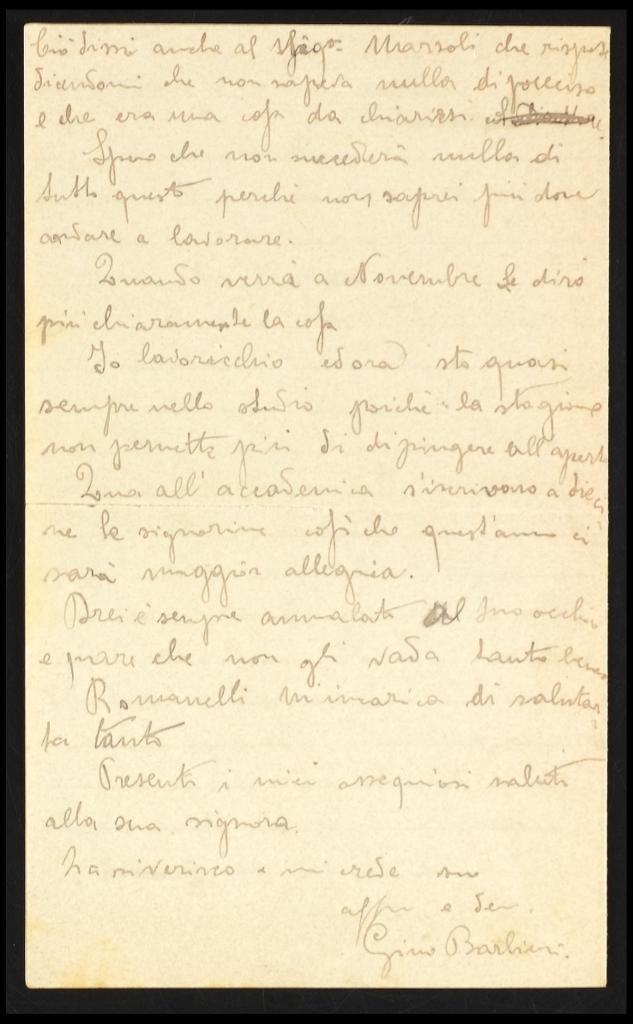 Ciò dissi anche al Sigr. Marzoli che rispose
dicendomi che non sapeva nulla di preciso
e che era una cosa da chiarirsi
Spero che non succederà nulla di
tutto questo perchè non saprei più dove
andare a lavorare.
Quando verrà a Novembre Le dirò
più chiaramente la cosa
Io lavoricchio ed ora sto quasi
sempre nello studio poichè la stagione
non permette più di dipingere all'aperto
Qua all'accademica s'iscrivono a dieci
ne le signorine così che quest'anno ci
sarà maggior allegria.
è sempre ammalato al suo occhio
e pare che non gli vada tanto bene
Romanelli m'incarica di salutar
la tanto
Presenti i miei ossequiosi saluti
alla sua signora.
La riverisco e mi creda suo
affmo e dev.
Gino Barbieri.